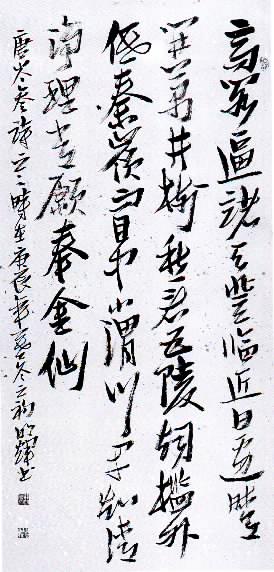 高閣逼諸天登臨近日邊晴
開萬井樹愁看五陵烟檻外
低秦嶺窗中小渭川早知清
净理常願奉金仙
唐岑參詩之一時在庚辰年孟冬之初書